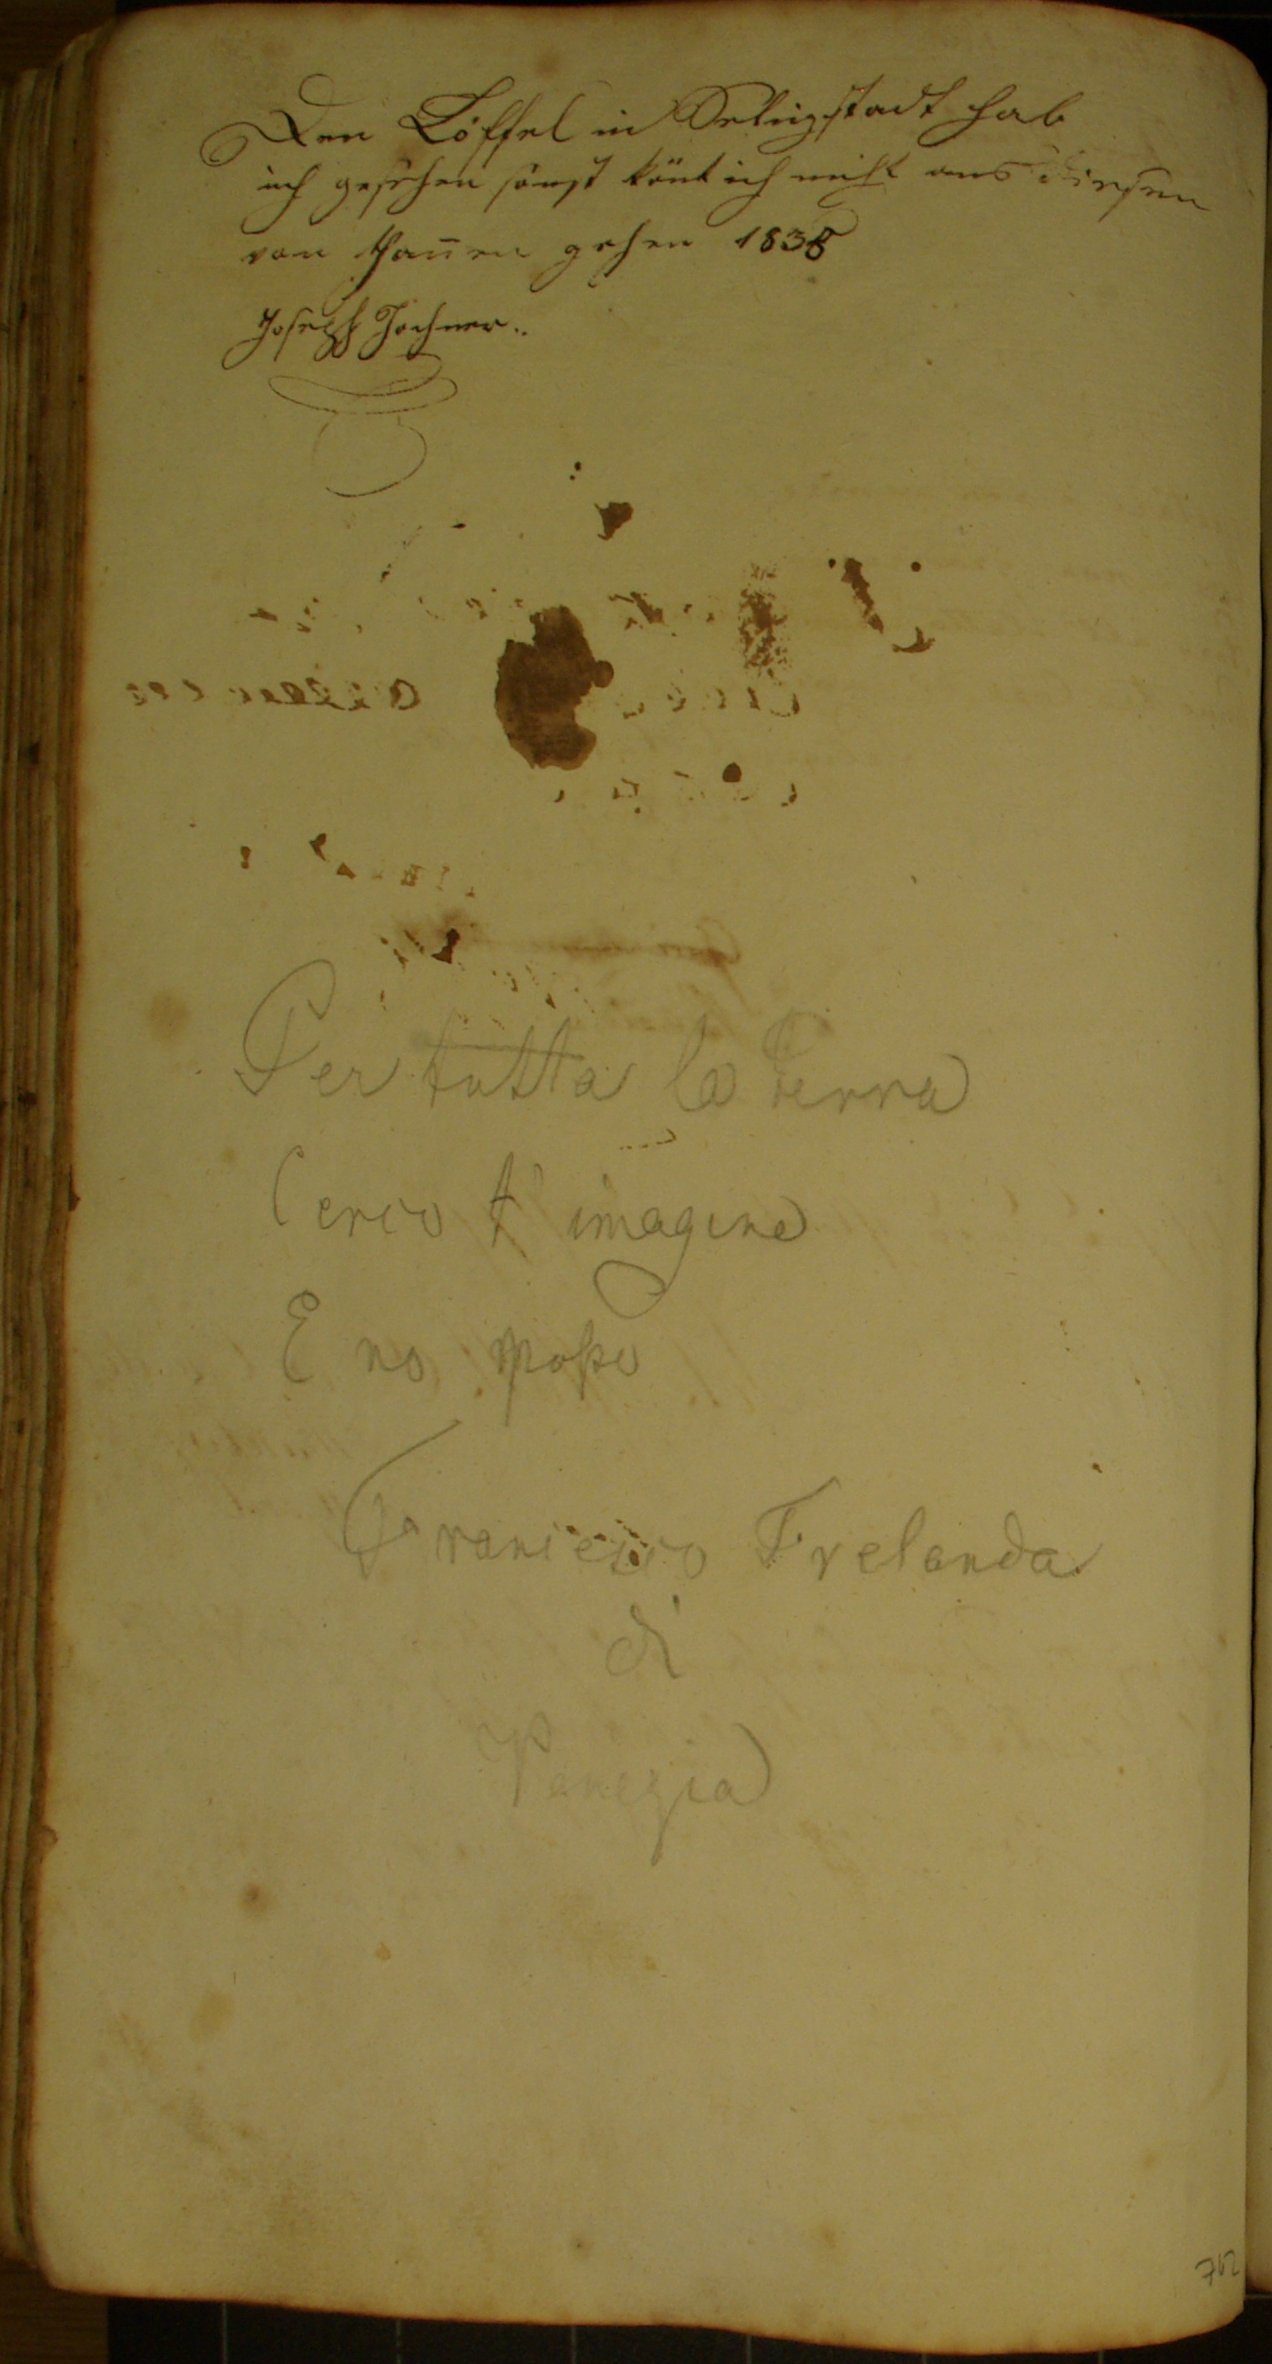 Den Löffel in Seligstadt hab
ich gesehen sonst könt ich nicht aus diesen
von thañen gehen 1838
Joseph Jochner..
Per tutta la terra
Cerco t' imagine
E no poßo
Francesco Frelanda
di
Venezia
762